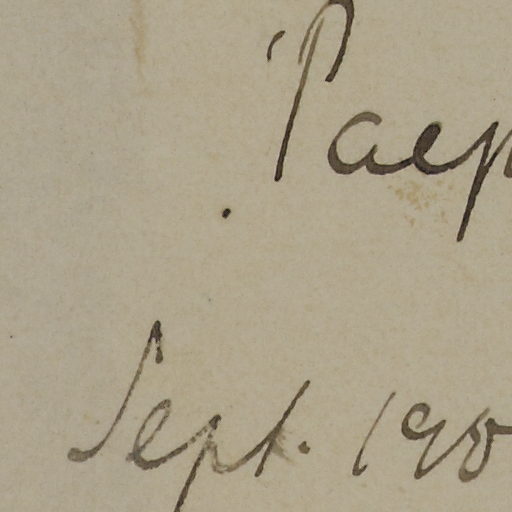 Paep
Sept. 190